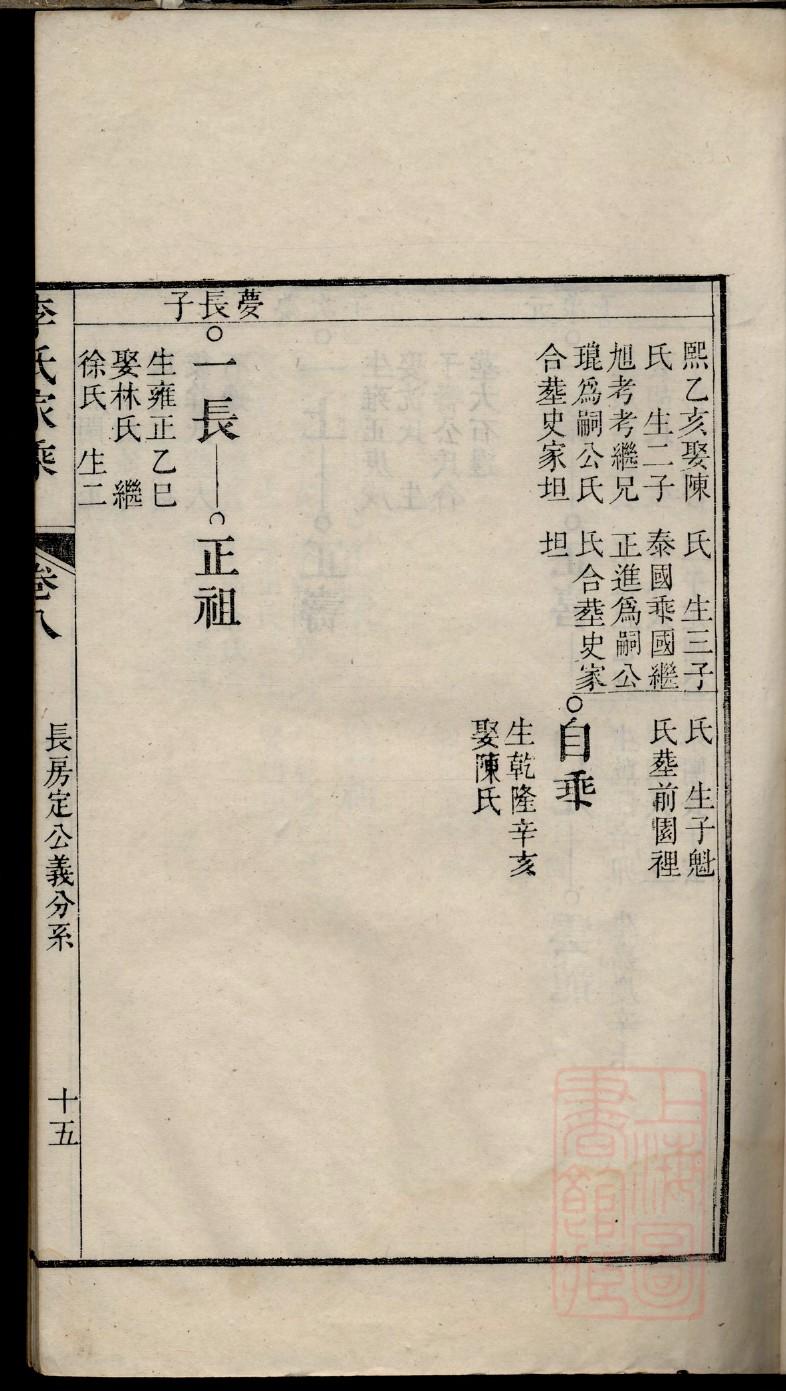 熙乙亥娶陳
氏 生二子
旭考考繼兄
琨爲嗣公氏
合塟史家坦
氏 生三子
泰國乘國繼
正進爲嗣公
氏合塟史家
坦
氏 生子魁
氏塟前園裡
自乘
生乾隆辛亥
娶陳氏
夢長子
一長
正祖
生雍正乙巳
娶林氏 繼
徐氏 生二
李氏家乘
卷八
長房定公義分系
十五
上海圖
書館藏